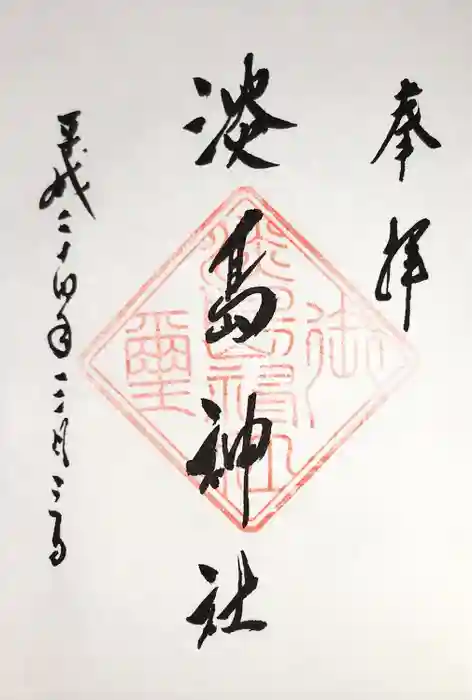 奉拝
淡島神社
平成二十四年三月三日
御
淡島神社
璽